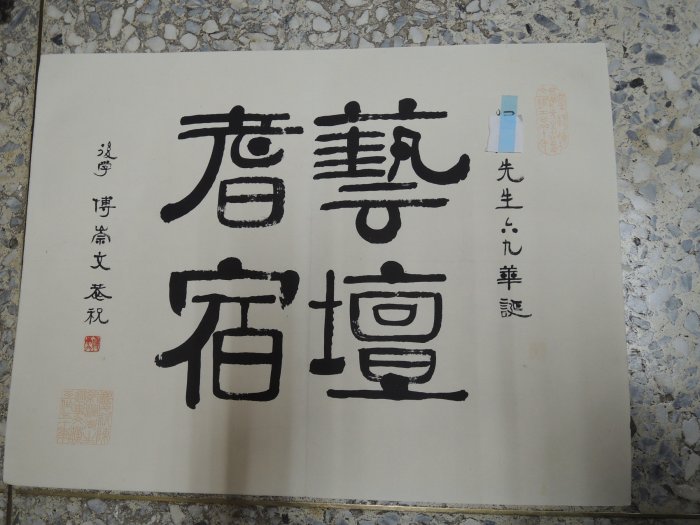 先生六九華誕
藝壇
耆宿
後學 傅崇文 恭祝